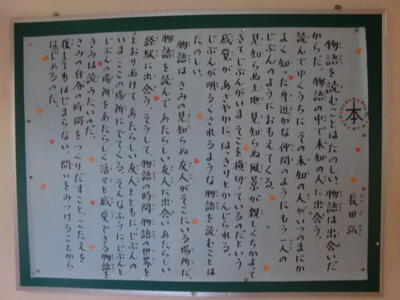 本
長田弘
物語を読むことはたのしい。物語は出会いだ
からだ。物語の中で未知の人に出会う。
読んでゆくうちに、その未知の人がいつのまにか
よく知った身近かな仲間のように、もう一人の
じぶんのようにおもえてくる。
見知らぬ土地、見知らぬ風景が親しくちかづいて
きて、じぶんがいまそこを横切っているのだという
感覚があざやかに、はっきりとかんじられる。
じぶんが明るくされるような物語を読むことは
たのしい。
物語はきみの見知らぬ友人がそこにいる場所だ。
物語を読んで、あたらしい友人に出会い、あたらしい
経験に出会う。そうして、物語の時間、物語の世界を
とおりぬけて、あたらしい友人とともに、じぶんの
いま、ここの場所にでてくる。そんなふうにじぶんと
じぶんの場所をあたらしく活々と感覚できる物語を
きみは読みたいのだ。
きみの自分の時間をつくりだすこと、こたえを
復しゅうしてもはじまらない。問いをみつけることから
はじめるのだ。